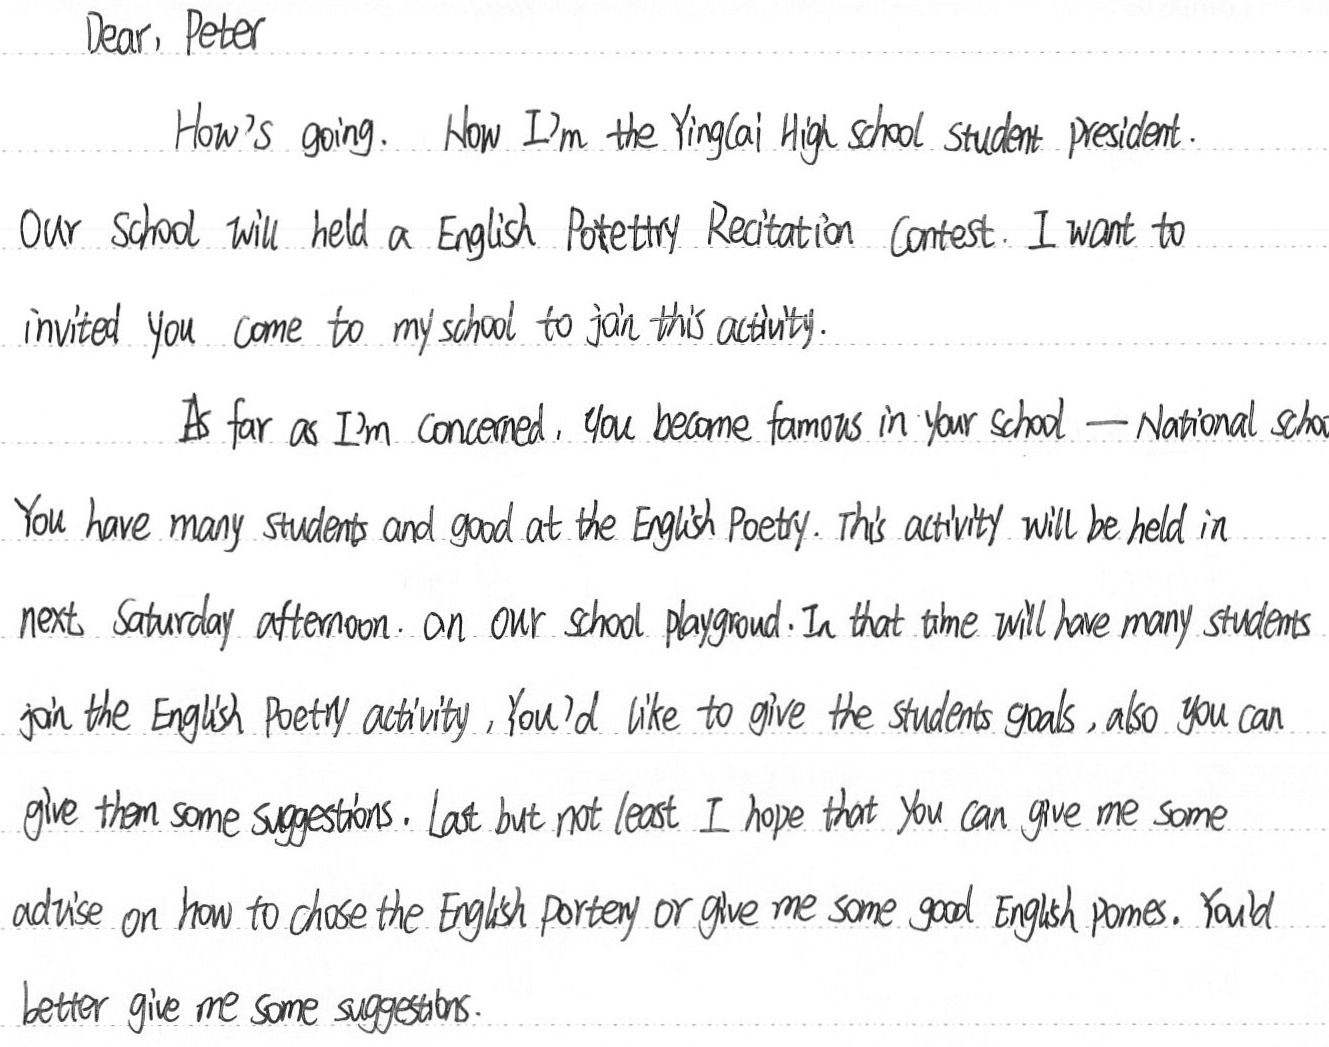 Dear, Peter
How's going. Now I'm the Yingcai High school student president.
Our school will held a English Potettry Recitation Contest. I want to
invited you come to my school to join this activity.
As far as I'm concerned, you become famous in your school — National schoo
You have many students and good at the English Poetry. This activity will be held in
next Saturday afternoon. on our school playgroud. In that time will have many students
join the English Poetry activity, You'd like to give the students goals, also you can
give them some suggestions. Last but not least I hope that you can give me some
advise on how to chose the English portery or give me some good English pomes. You'd
better give me some suggestions.